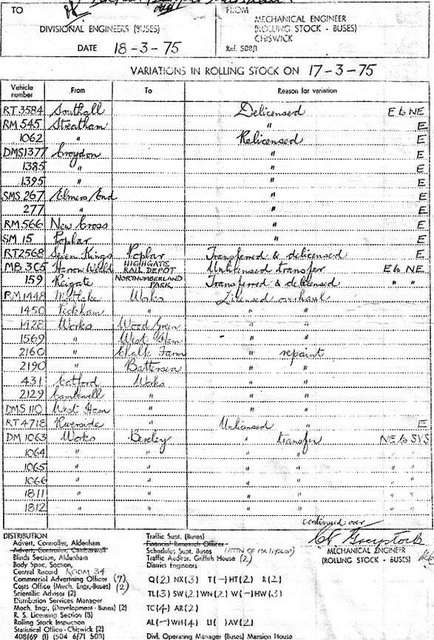 TO
FROM
MECHANICAL ENGINEER
(ROLLING STOCK - BUSES)
CHISWICK
DIVISIONAL ENGINEERS (BUSES)
DATE 18-3-75
Ref. 508/1
VARIATIONS IN ROLLING STOCK ON 17-3-75
Vehicle number From To Reason for variation
RT3584 Southall Delicensed E to NE
RM 545 Streatham " E
1062 " Relicensed E
DMS1377 Croydon " E
1385 " " E
1395 " " E
SMS 267 Elmers End " E
277 " " E
RM566 New Cross " E
SM 15 Poplar " E
RT2568 Seven Kings Poplar Transferred & delicensed E
MB 305 Harrow Weald HIGHGATE RAIL DEPOT Unlicensed transfer E to NE
159 Reigate NORTHUMBERLAND PARK Transferred & delicensed " "
RM1448 Mortlake Works Licensed overhaul
1450 Peckham " " "
1428 Works Wood Green " "
1569 " West Ham " "
2160 " Chalk Farm " repaint
2190 " Battersea " "
431 Catford Works " "
2129 Camberwell " " "
DMS 110 West Ham " " "
RT4718 Riverside " Unlicensed " E
DM 1063 Works Bexley " transfer NE to SYS
1064 " " " " "
1065 " " " " "
1066 " " " " "
1811 " " " " "
1812 " " " " "
continued over
MECHANICAL ENGINEER
(ROLLING STOCK - BUSES)
DISTRIBUTION
Advert. Controller, Aldenham
Blinds Section, Aldenham
Body Spec. Section
Central Record ROOM 34
Commercial Advertising Officer (7)
Coys Office (Mech. Engr. Buses) (2)
Scientific Advisor (2)
Distribution Services Manager
Mech. Engr. (Development - Buses) (2)
R. S. Licensing Section (3)
Rolling Stock Inspection
Statistical Office - Chiswick (2)
408/69 (1) (504 6/71 508)
Traffic Supt. (Buses)
Financial Research Officer
Schedules Supt. Buses
Traffic Auditor, Griffith House (2)
District Engineers
Q(2) NX(3) T(-) HT(2) R(2)
TL(3) SW(2) WN(2) W(-) HW(3)
TC(4) AR(2)
AL(-) WH(4) U(-) AV(2)
Divl. Operating Manager (Buses) Mansion House